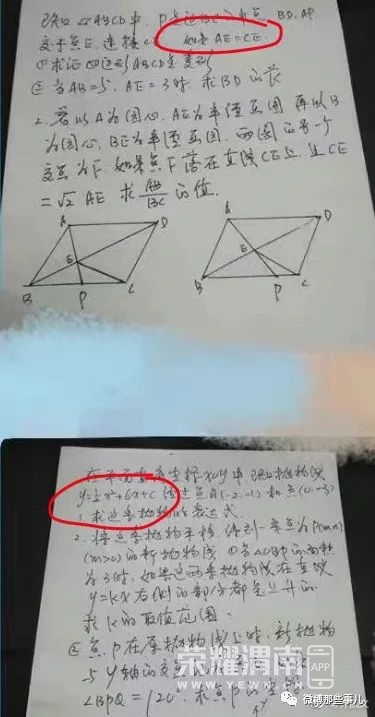 已知▱ABCD中,P是边BC的中点,BD、AP
交于点E,连接CE 如果AE=CE
①求证四边形ABCD是菱形
②当AB=5,AE=3时求BD的长
2.若以A为圆心,AE为半径画圆 再以B
为圆心,BE为半径画圆,两圆的另一个
交点为F,如果点F落在直线CE上,且CE
=√2 AE 求AB/BC的值.
A D E B P C
A D E B P C
在平面直角坐标xoy中 已知抛物线
y=½x²+bx+c 经过点A(-2,-1)和点(0,-3)
1.求这条抛物线的表达式
2.将这条抛物线平移,得到一条点P(m,n)
(m>0)的新抛物线 ①当△OBP的面积
为3时,如果这两条抛物线在直线
y=kx右侧的部分都是上升的
求k的取值范围.
②点P在原抛物线上时,新抛物
与y轴的交点
∠BPQ=120°,求点P的坐标
荣耀渭南 APP
微博那些事儿